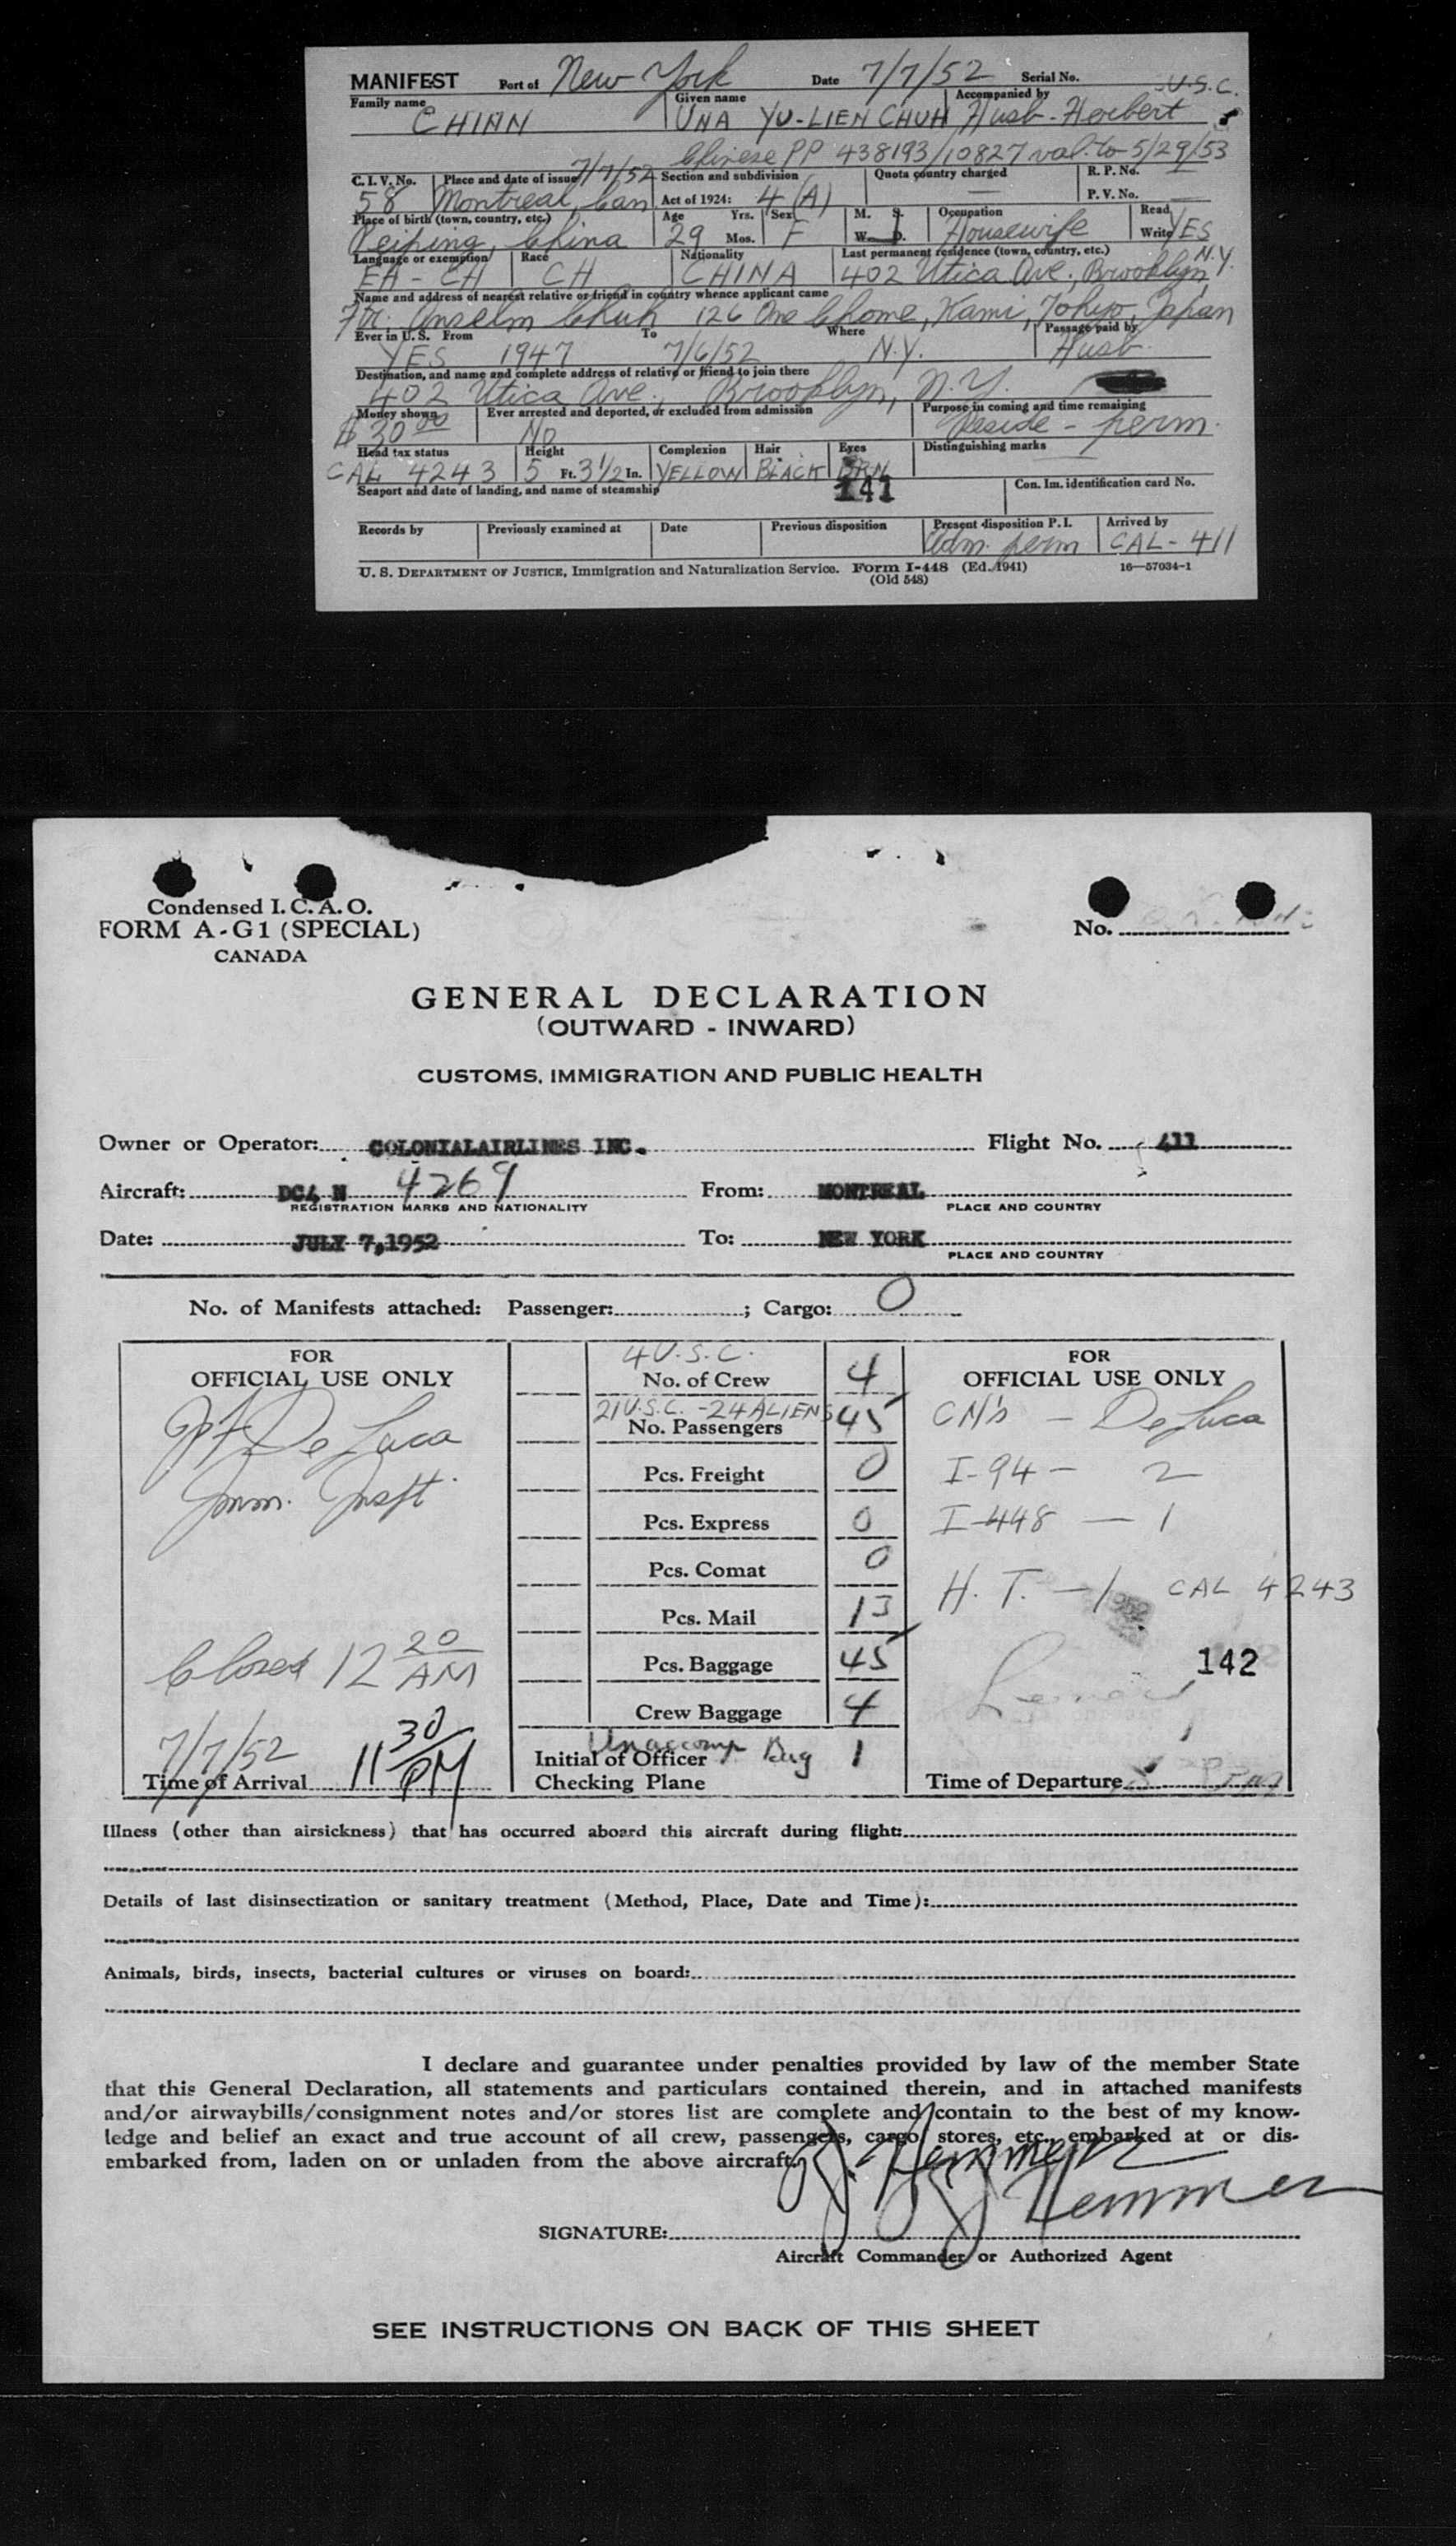 MANIFEST Port of New York Date 7/7/52 Serial No. U.S.C.
Family name Given name Accompanied by
CHINN UNA YU-LIEN CHUH Husb-Herbert
Chinese PP 438193/10827 val to 5/29/53
C. I. V. No. Place and date of issue 7/7/52 Section and subdivision Quota country charged — R. P. No. —
58 Montreal, Can Act of 1924: 4 (A) P. V. No. —
Place of birth (town, country, etc.) Age Yrs. Sex M. S. Occupation Read
Peiping, China 29 Mos. F W. D. Housewife Write YES
Language or exemption Race Nationality Last permanent residence (town, country, etc.) N.Y.
EA - CH CH CHINA 402 Utica Ave., Brooklyn,
Name and address of nearest relative or friend in country whence applicant came
Anselm Chuh 126 One Chome, Kami, Tokyo, Japan
Ever in U. S. From To Where Passage paid by
YES 1947 7/6/52 N.Y. Husb.
Destination, and name and complete address of relative or friend to join there
402 Utica Ave., Brooklyn, N.Y.
Money shown Ever arrested and deported, or excluded from admission Purpose in coming and time remaining
$ 30 00 No Reside - perm.
Head tax status Height Complexion Hair Eyes Distinguishing marks
CAL 4243 5 Ft. 3 1/2 In. YELLOW BLACK BRN
141
Seaport and date of landing, and name of steamship Con. Im. identification card No.
Records by Previously examined at Date Previous disposition Present disposition P. I. Arrived by
Adm. perm CAL - 411
U. S. DEPARTMENT OF JUSTICE, Immigration and Naturalization Service. Form I-448 (Ed. 1941) 16—57034-1
(Old 548)
Condensed I. C. A. O.
FORM A-G1 (SPECIAL)
CANADA
No.
GENERAL DECLARATION
(OUTWARD - INWARD)
CUSTOMS, IMMIGRATION AND PUBLIC HEALTH
Owner or Operator: COLONIALAIRLINES INC. Flight No. 411
Aircraft: DC4 N 4269 From: MONTREAL
REGISTRATION MARKS AND NATIONALITY PLACE AND COUNTRY
Date: JULY 7,1952 To: NEW YORK
PLACE AND COUNTRY
No. of Manifests attached: Passenger: ; Cargo: 0
FOR
OFFICIAL USE ONLY
De Luca
Imm. Inspt.
Closed 12 20 AM
7/7/52 11 30 PM
Time of Arrival
4 U.S.C.
No. of Crew 4
21 U.S.C. - 24 ALIENS
No. Passengers 45
Pcs. Freight 0
Pcs. Express 0
Pcs. Comat 0
Pcs. Mail 13
Pcs. Baggage 45
Crew Baggage 4
Unaccomp Bag 1
Initial of Officer
Checking Plane
FOR
OFFICIAL USE ONLY
CN's — De Luca
I-94 — 2
I-448 — 1
H. T. — 1 CAL 4243
142
Time of Departure
Illness (other than airsickness) that has occurred aboard this aircraft during flight:
Details of last disinsectization or sanitary treatment (Method, Place, Date and Time):
Animals, birds, insects, bacterial cultures or viruses on board:
I declare and guarantee under penalties provided by law of the member State
that this General Declaration, all statements and particulars contained therein, and in attached manifests
and/or airwaybills/consignment notes and/or stores list are complete and contain to the best of my know-
ledge and belief an exact and true account of all crew, passengers, cargo, stores, etc., embarked at or dis-
embarked from, laden on or unladen from the above aircraft.
J. Hemmer
J J Hemmer
SIGNATURE:
Aircraft Commander or Authorized Agent
SEE INSTRUCTIONS ON BACK OF THIS SHEET